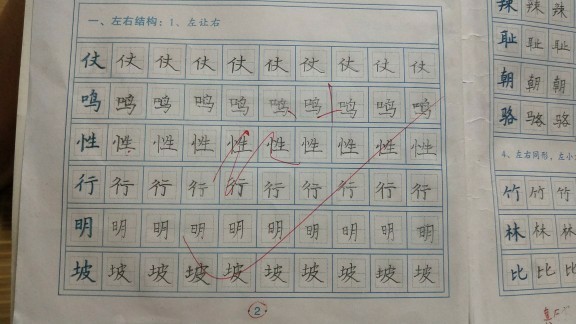 一、左右结构：1、左让右
仗 仗 仗 仗 仗 仗 仗 仗 仗 仗
鸣 鸣 鸣 鸣 鸣 鸣 鸣 鸣 鸣 鸣
性 性 性 性 性 性 性 性 性 性
行 行 行 行 行 行 行 行 行 行
明 明 明 明 明 明 明 明 明 明
坡 坡 坡 坡 坡 坡 坡 坡 坡 坡
2
辣 辣 辣
耻 耻 耻
朝 朝 朝
骆 骆 骆
4、左右同形，左小
竹 竹 竹
林 林 林
比 比 比